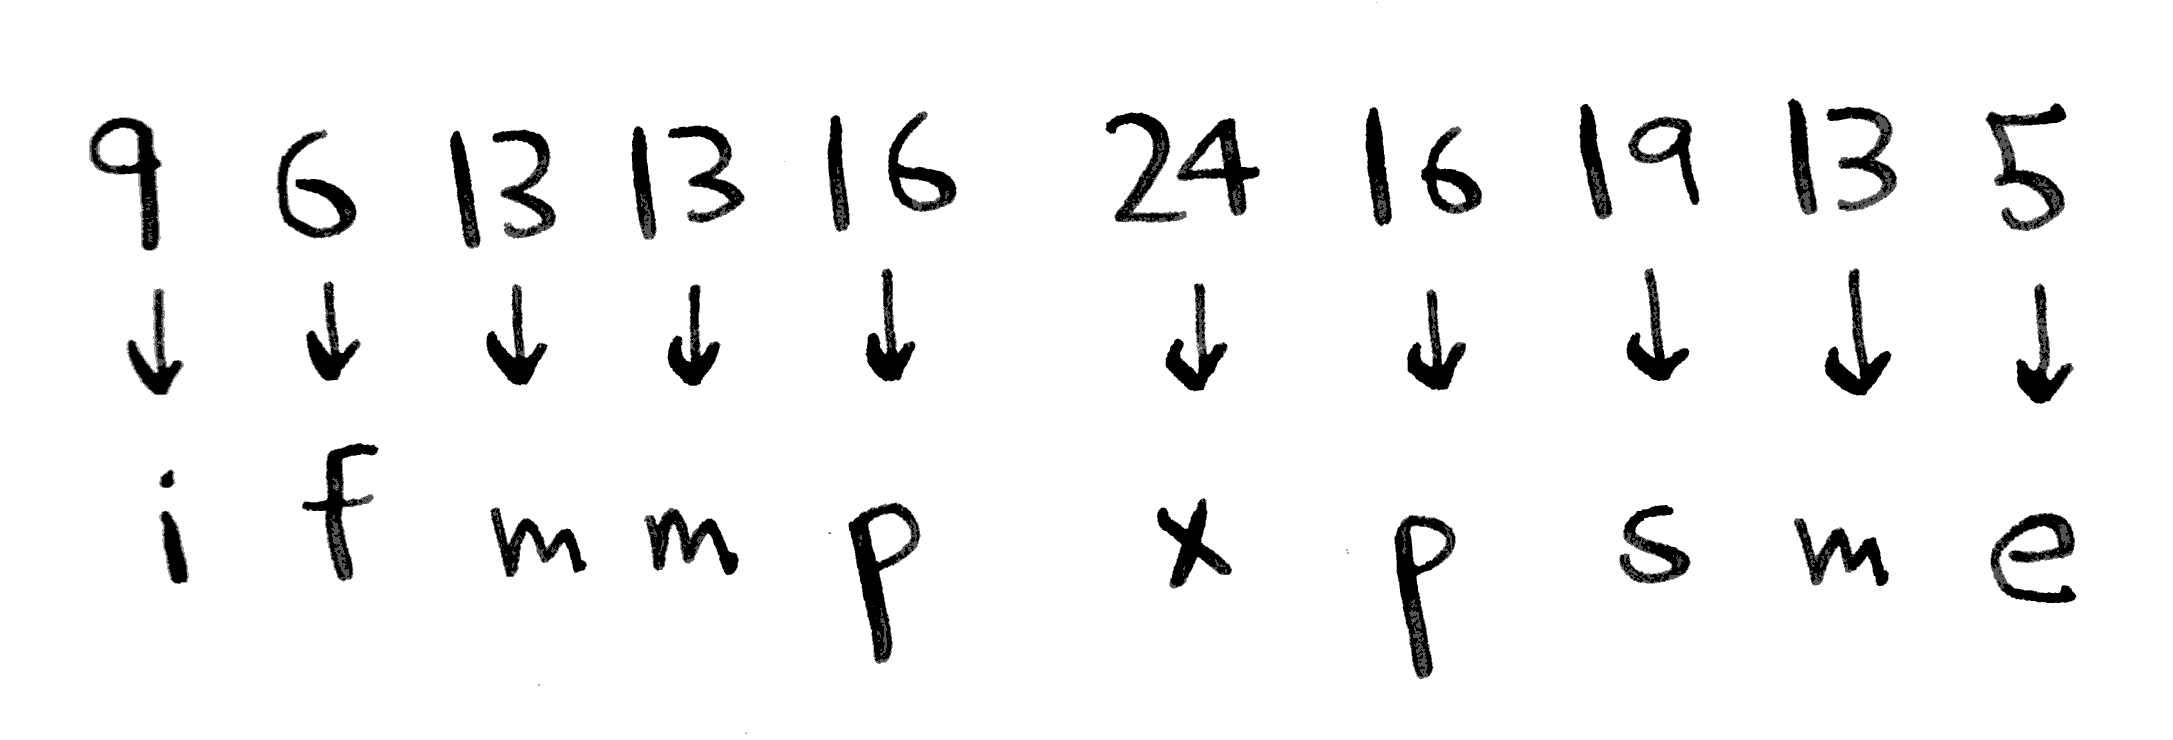 9 6 13 13 16 24 16 19 13 5
↓ ↓ ↓ ↓ ↓ ↓ ↓ ↓ ↓ ↓
i f m m p x p s m e